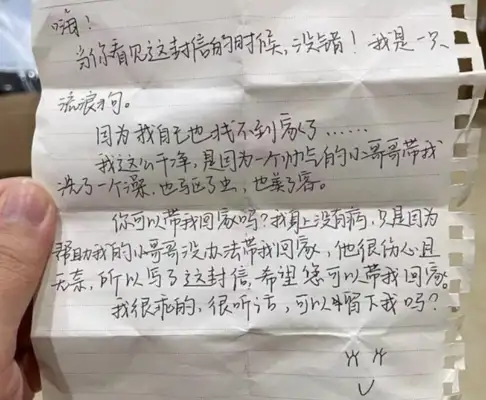 嗨！
当你看见这封信的时候，没错！我是一只
流浪狗。
因为我自己也找不到家了……
我这么干净，是因为一个帅气的小哥哥带我
洗了一个澡，也驱了虫，也美了容。
你可以带我回家吗？我身上没有病，只是因为
帮助我的小哥哥没办法带我回家，他很伤心且
无奈，所以写了这封信，希望您可以带我回家。
我很乖的，很听话，可以留下我吗？